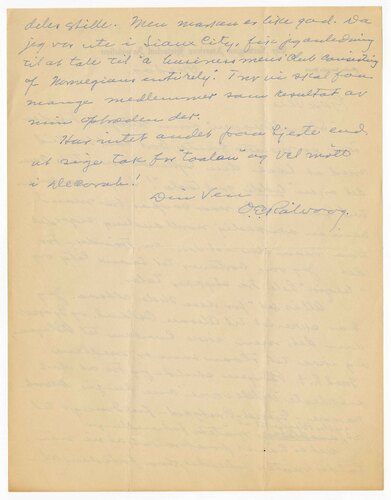 deles stille. Men massen er like god. Da
jeg var ute i Sioux City, fik jeg anledning
til at tale til "a business men's Club consisting
of Norwegians entirely." Tror vi skal faa
mange medlemmer som resultat av
min optræden der.
Har intet andet paa hjerte end
at sige tak for og vel møtt
i Decorah!
Din Ven
O. E. Rølvaag.